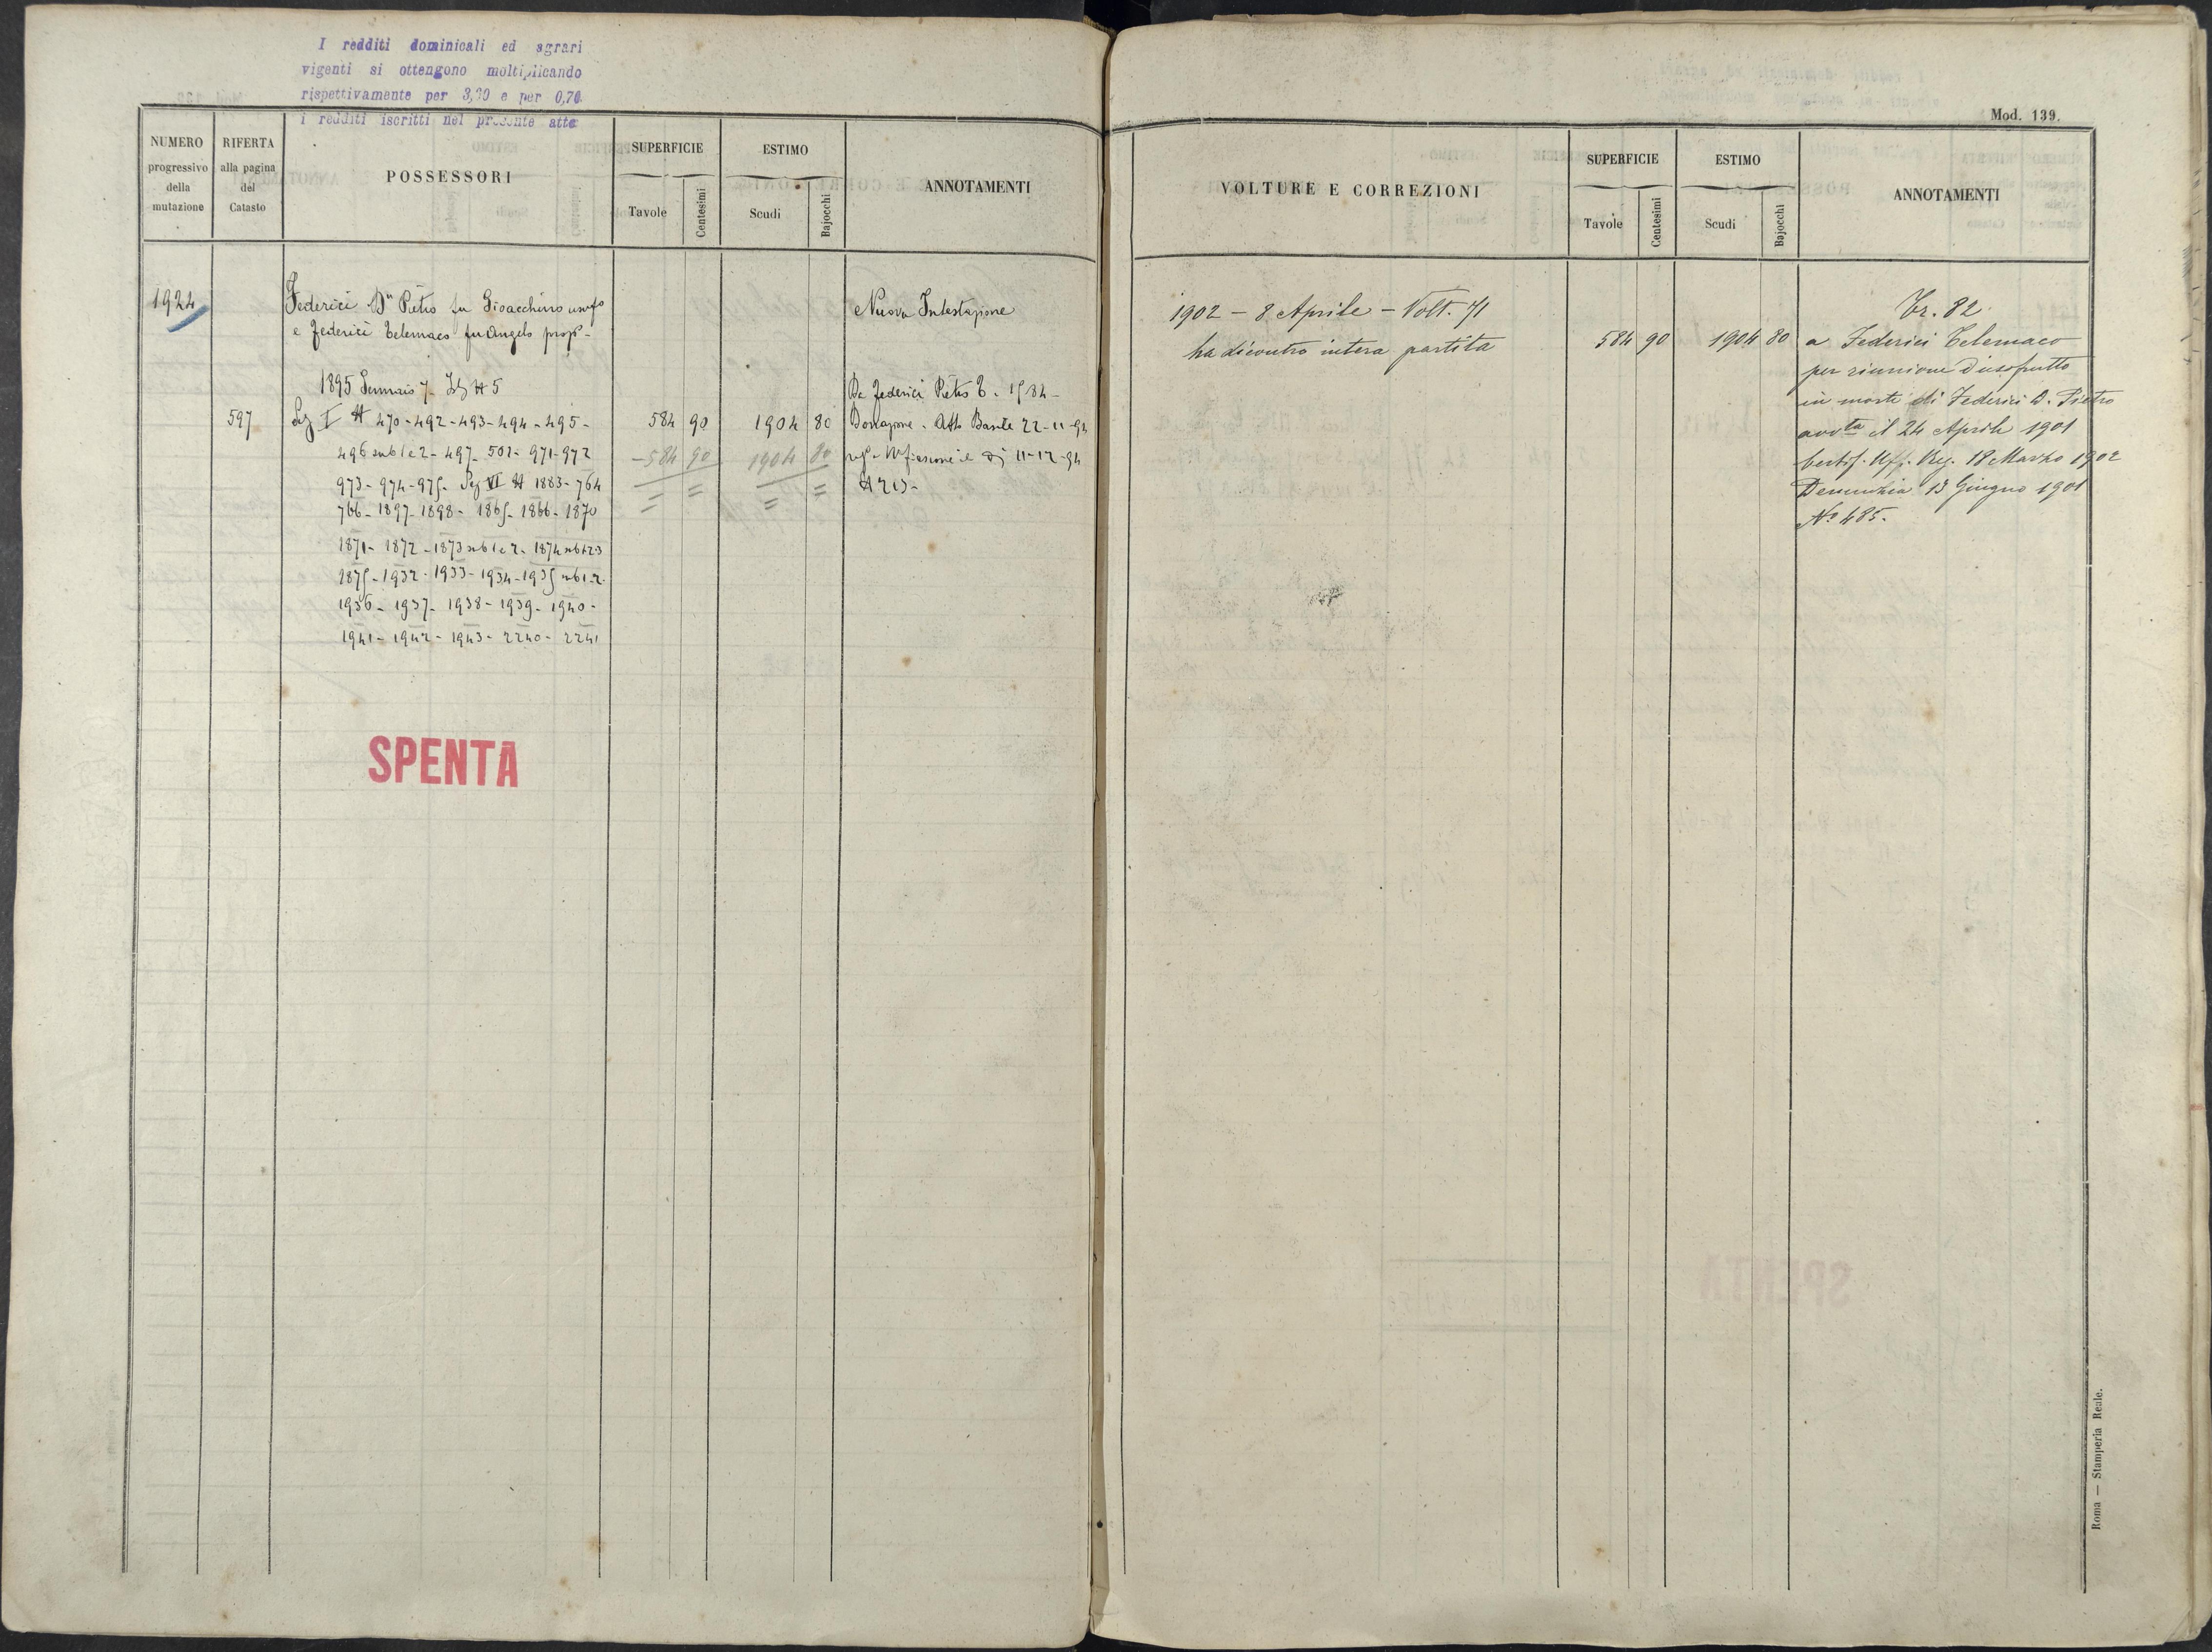 I redditi dominicali ed agrari
vigenti si ottengono moltiplicando
rispettivamente per 3,30 e per 0,70
i redditi iscritti nel presente atto
NUMERO
progressivo
della
mutazione
RIFERTA
alla pagina
del
Catasto
POSSESSORI
SUPERFICIE
Tavole
Centesimi
ESTIMO
Scudi
Bajocchi
ANNOTAMENTI
1924
Federici Dn Pietro fu Gioacchino usufo
e Federici Telemaco fu Angelo prop°-
Nuova Intestazione
1895 Gennaio 7
Da Federici Pietro 1584-
597
Sez I # 470-492-493-494-495-
584 90
1904 80
Donazione. Atto 22-11-94
496 sub 1 e 2-497-502-971-972
-584 90
1904 80
11-12-94
973-974-975- Sez VI # 1883-764
= =
= =
# 213-
766-1897-1898-1865-1866-1870
1871-1872-1873 sub 1 e 2-1874 sub 1 2 3
1875-1932-1933-1934-1935 sub 1-2-
1936-1937-1938-1939-1940-
1941-1942-1943-2240-2241
SPENTA
Mod. 139.
VOLTURE E CORREZIONI
SUPERFICIE
Tavole
Centesimi
ESTIMO
Scudi
Bajocchi
ANNOTAMENTI
1902 - 8 Aprile - Volt. 71
ha dicontro intera partita
584 90
1904 80
Tr. 82.
a Federici Telemaco
per riunione d'usofrutto
in morte di Federici D. Pietro
avvta il 24 Aprile 1901
Certif. Uff. Reg. 18 Marzo 1902
Denunzia 13 Giugno 1901
N° 485.
Roma — Stamperia Reale.